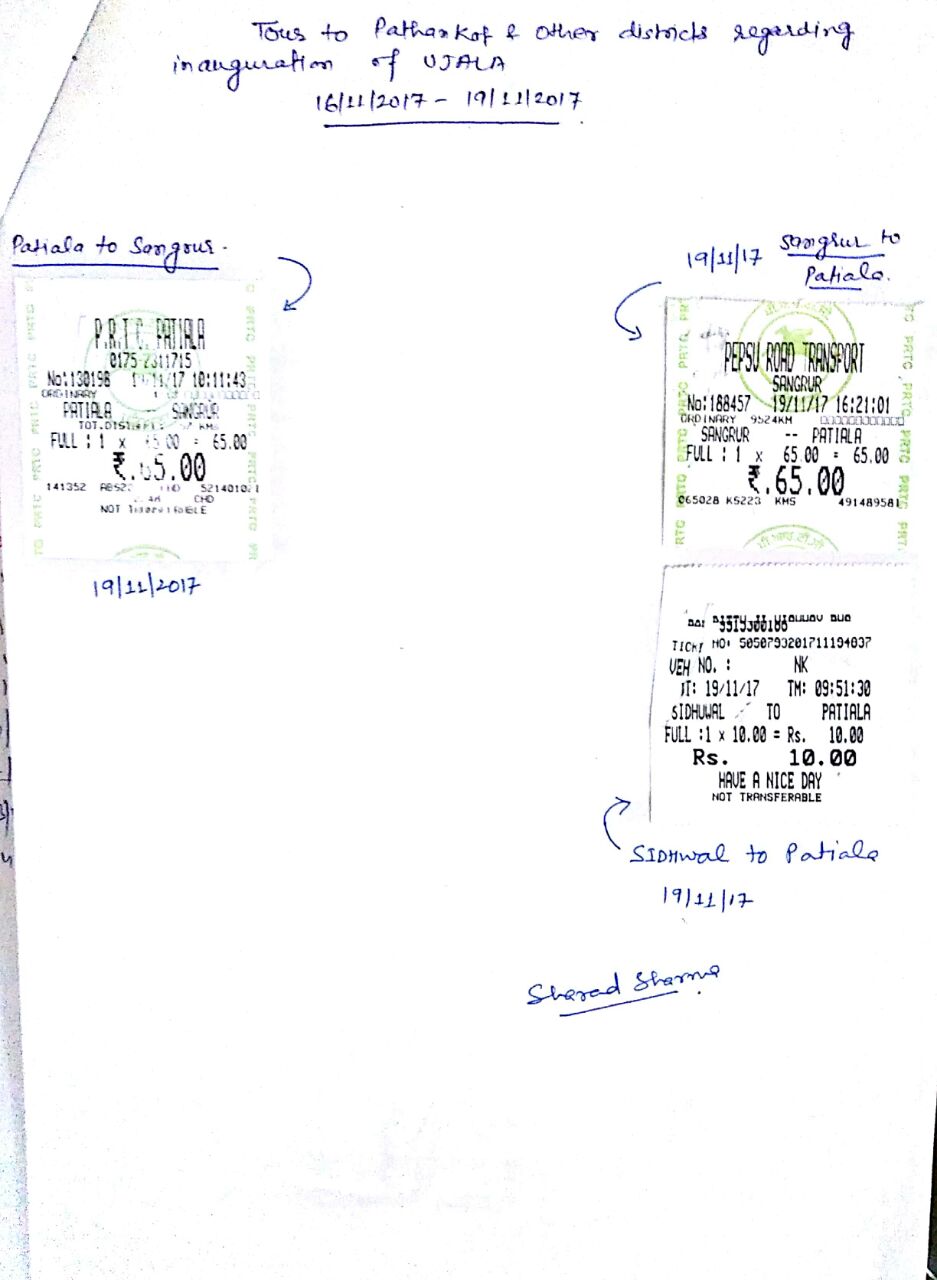 Tour to Pathankot & other districts regarding
inauguration of UJALA
16/11/2017 - 19/11/2017
Patiala to Sangrur.
P.R.T.C. PATIALA
0175-2311715
No:130198 19/11/17 10:11:43
ORDINARY
PATIALA SANGRUR
FULL : 1 x 65.00 = 65.00
₹.65.00
141352
CHD
NOT
19/11/2017
19/11/17 Sangrur to
Patiala.
PEPSU ROAD TRANSPORT
SANGRUR
No:188457 19/11/17 16:21:01
ORDINARY 9524KM
SANGRUR -- PATIALA
FULL : 1 x 65.00 = 65.00
₹.65.00
065028 KS223 KMS 491489581
TICKT NO: 5050793201711194037
VEH NO. : NK
DT: 19/11/17 TM: 09:51:30
SIDHUWAL TO PATIALA
FULL :1 x 10.00 = Rs. 10.00
Rs. 10.00
HAVE A NICE DAY
NOT TRANSFERABLE
SIDHwal to Patiala
19/11/17
Sharad Sharma
PRTC PRTC PRTC
पी आर टी सी